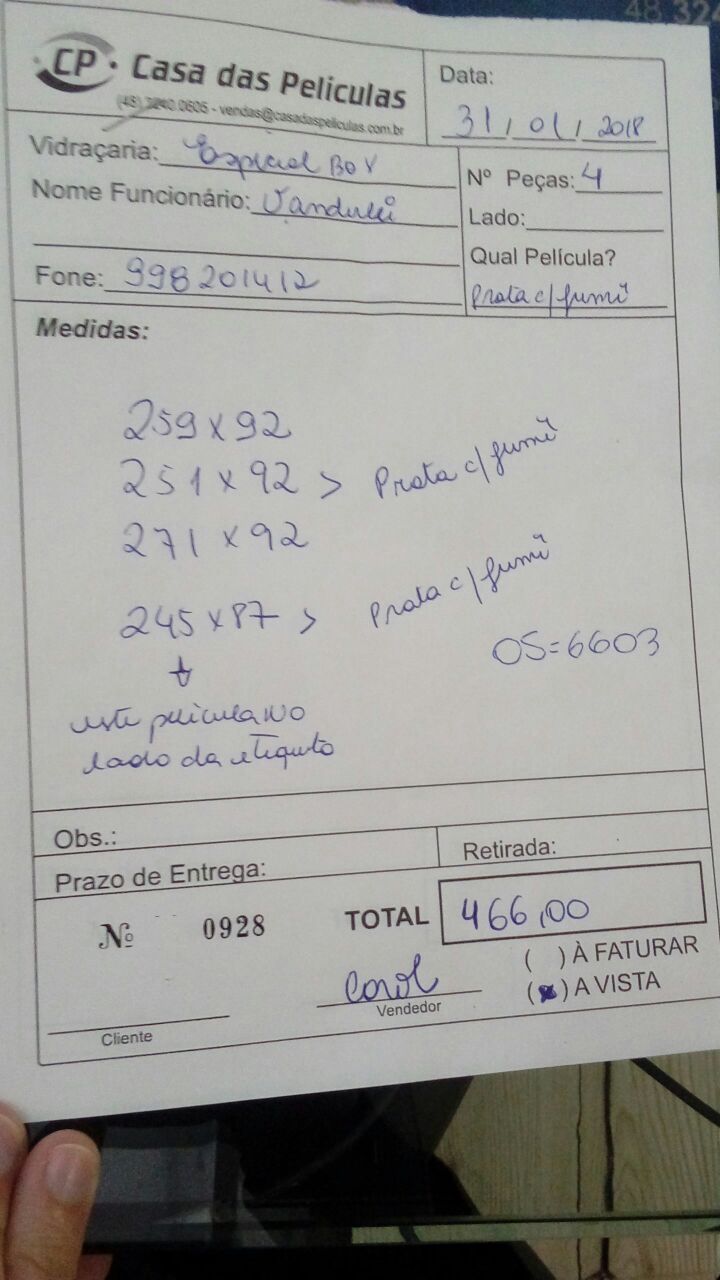 48 324
CP · Casa das Películas
(48) 3240.0606 - vendas@casadaspeliculas.com.br
Data:
31/01/2018
Vidraçaria: Especial Box
Nome Funcionário: Vandulei
Fone: 998201412
Nº Peças: 4
Lado:
Qual Película?
Prata c/ fumê
Medidas:
259 x 92
251 x 92 > Prata c/ fumê
271 x 92
245 x 87 > Prata c/ fumê
OS=6603
este pelicula no
lado da etiqueta
Obs.:
Prazo de Entrega:
Retirada:
Nº 0928 TOTAL 466,00
( ) À FATURAR
(x) A VISTA
Carol
Vendedor
Cliente